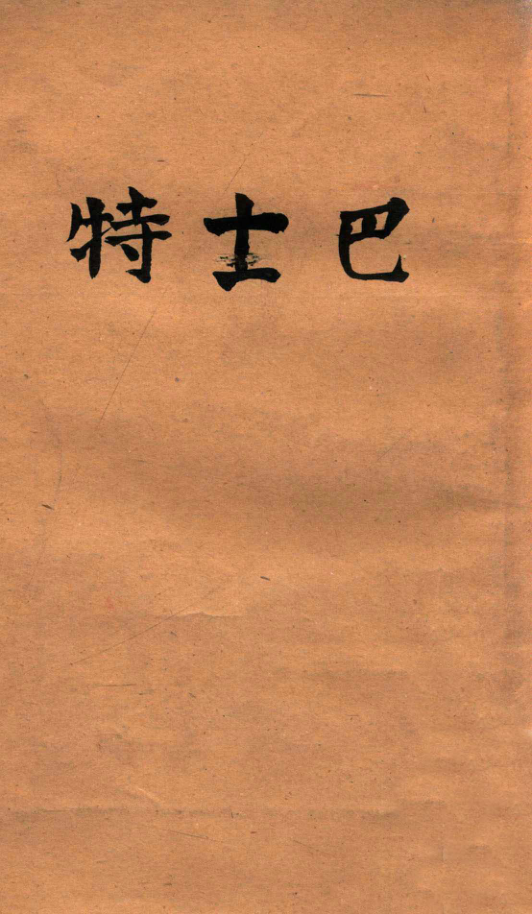 巴士特